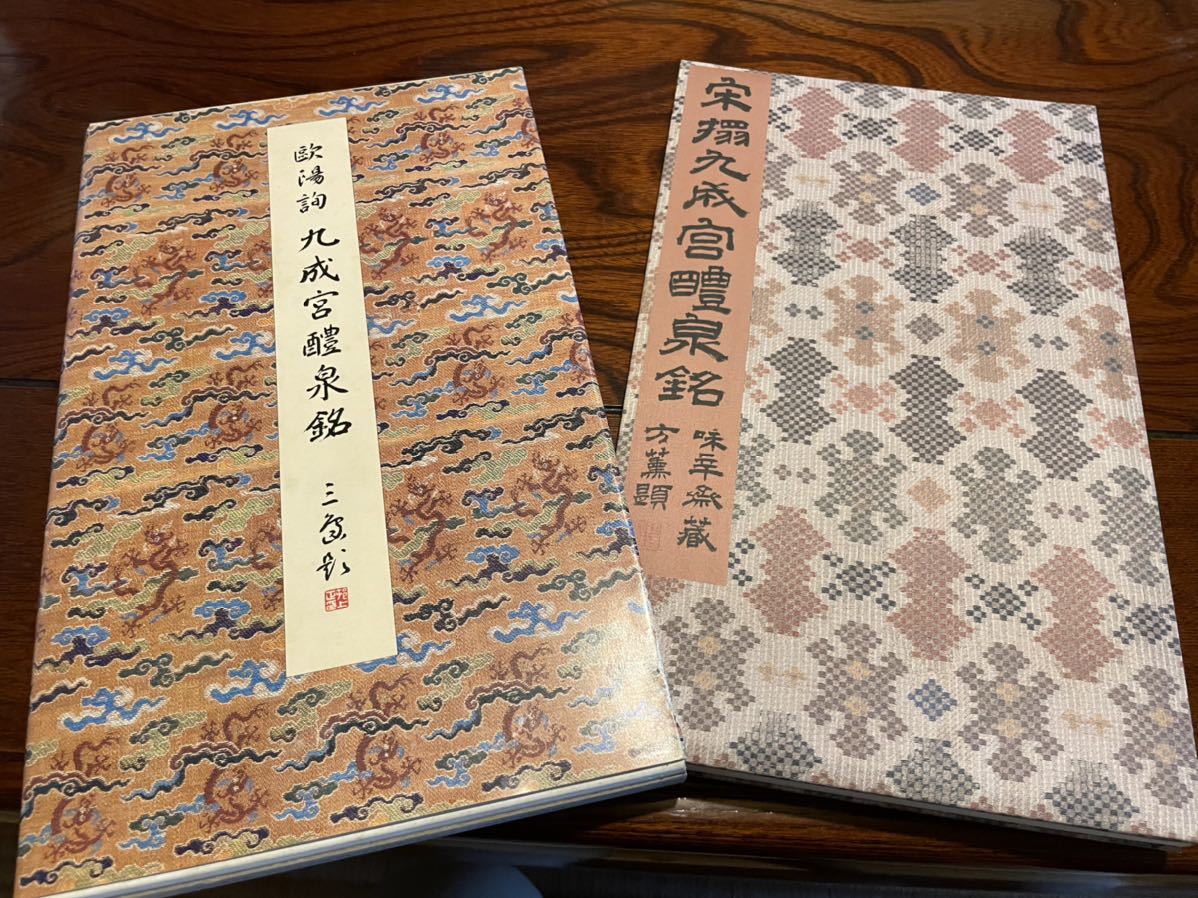 歐陽詢 九成宮醴泉銘 三象題
宋搨九成宮醴泉銘
味辛齋藏
方薰題